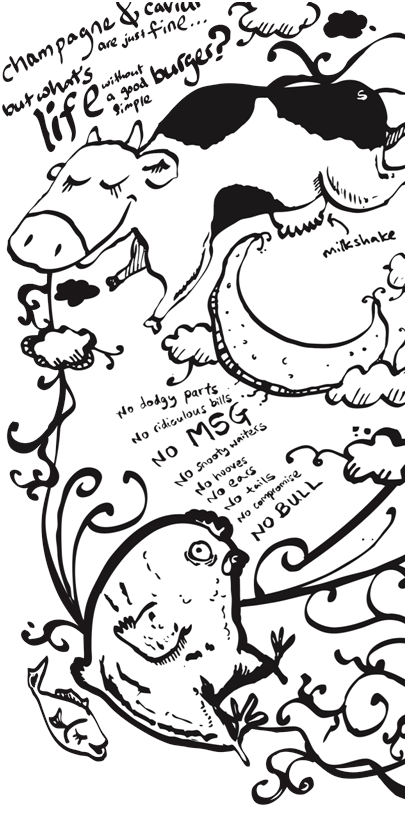 champagne & caviar
are just fine...
but what's
life without
a good
simple
burger?
milkshake
No dodgy parts
No ridiculous bills
NO MSG
No snooty waiters
No hooves
No ears
No tails
No compromise
NO BULL